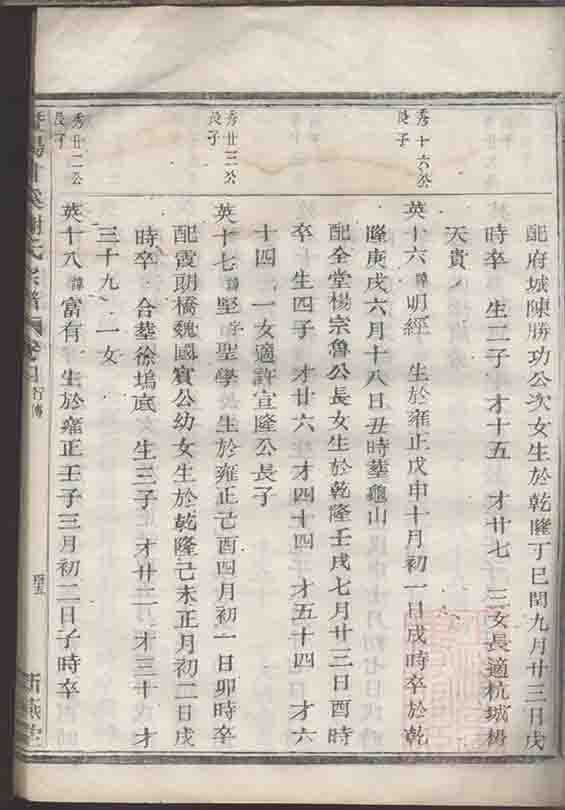 配府城陳勝功公次女生於乾隆丁巳閏九月廿三日戌
時卒　生二子　才十五　才廿七　三女長適杭城樹
天貴
秀十六公
長子
英十六　諱明經　生於雍正戊申十月初一日戌時卒於乾
隆庚戌六月十八日丑時葬龜山
配全堂楊宗魯公長女生於乾隆壬戌七月廿三日酉時
卒　生四子　才廿六　才四十四　才五十四　才六
十四　一女適許宣隆公長子
秀廿三公
長子
英十七　諱堅　字聖學　生於雍正己酉四月初一日卯時卒
配霞朗橋魏國賓公幼女生於乾隆己未正月初二日戌
時卒　合葬徐塢底　生三子　才廿二　才三十　才
三十九　一女
秀廿二公
長子
英十八　諱富有　生於雍正壬子三月初二日子時卒
陽　氏宗譜　卷　行傳